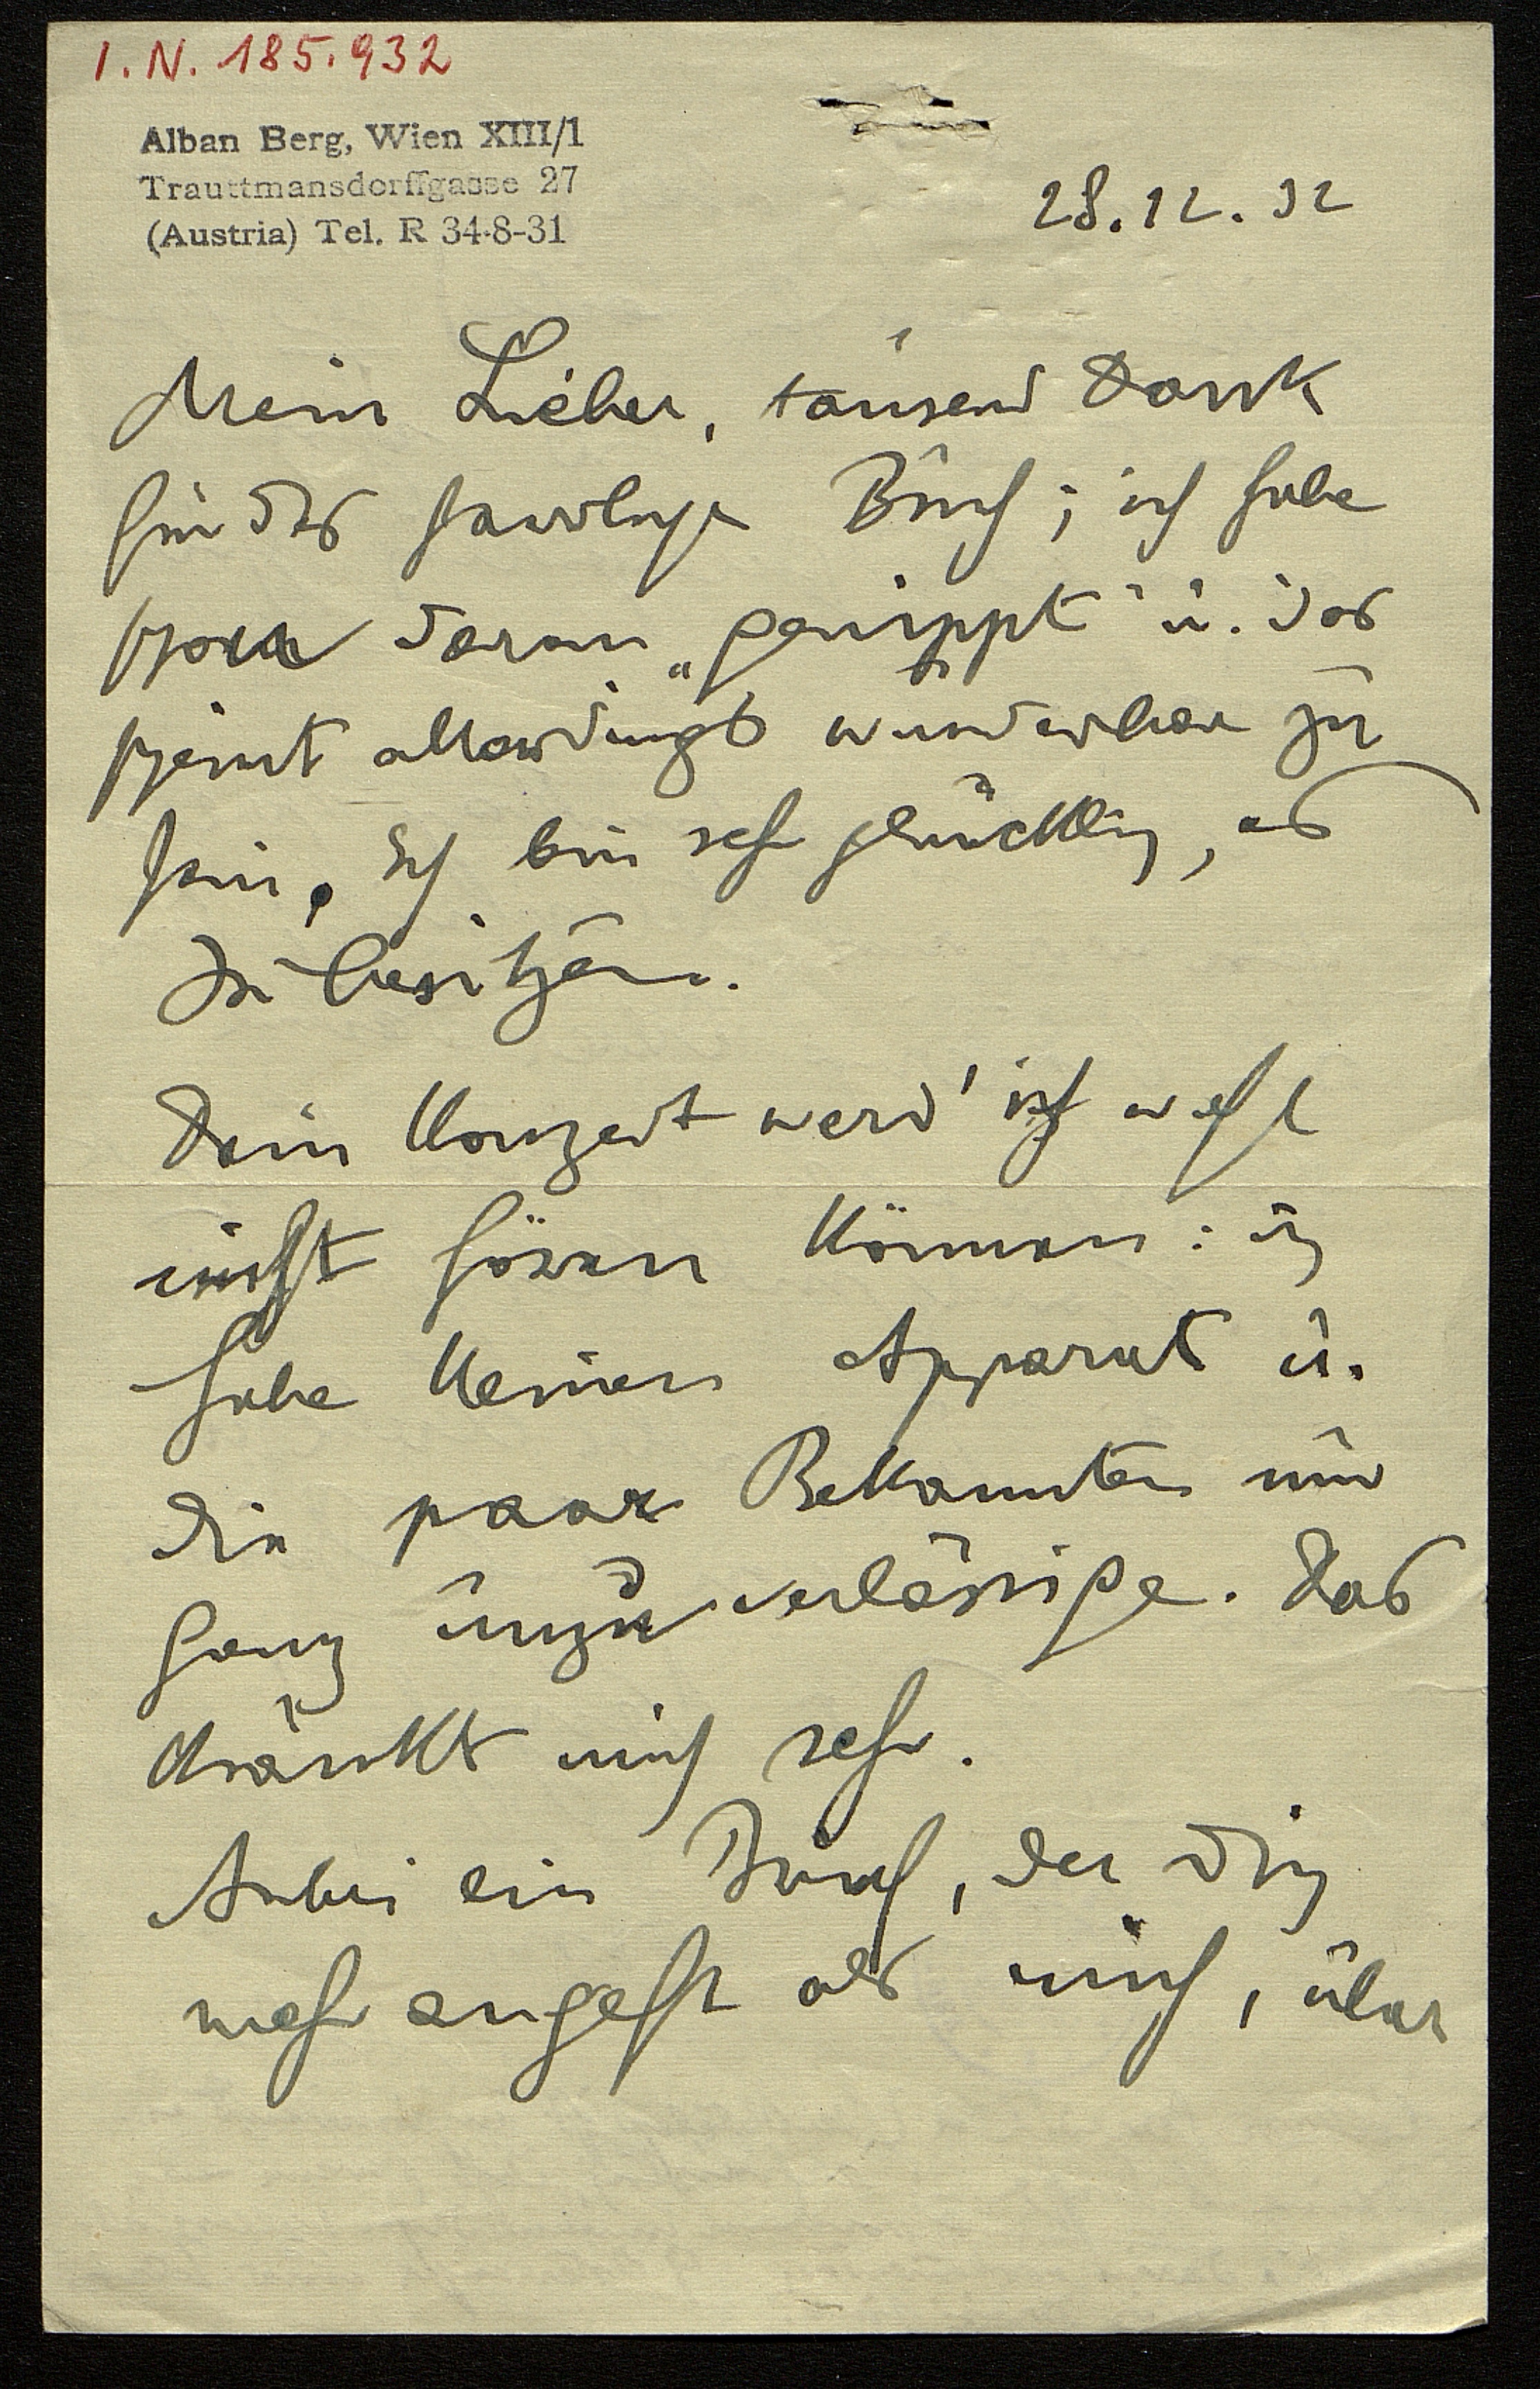 I.N. 185.932
Alban Berg, Wien XIII/1
Trauttmansdorffgasse 27
(Austria) Tel. R 34-8-31
28.12.32
Mein Lieber, tausend Dank
für das herrliche Buch; ich habe
schon daran „genippt" u. das
scheint allerdings wunderbar zu
sein. Ich bin sehr glücklich, es
zu besitzen.
Dein Konzert werd' ich wohl
nicht hören können: ich
habe keinen Apparat u.
die paar Bekannten nur
ganz unzuverlässige. Das
kränkt mich sehr.
Anbei ein Brief, der Dich
mehr angeht als mich, über